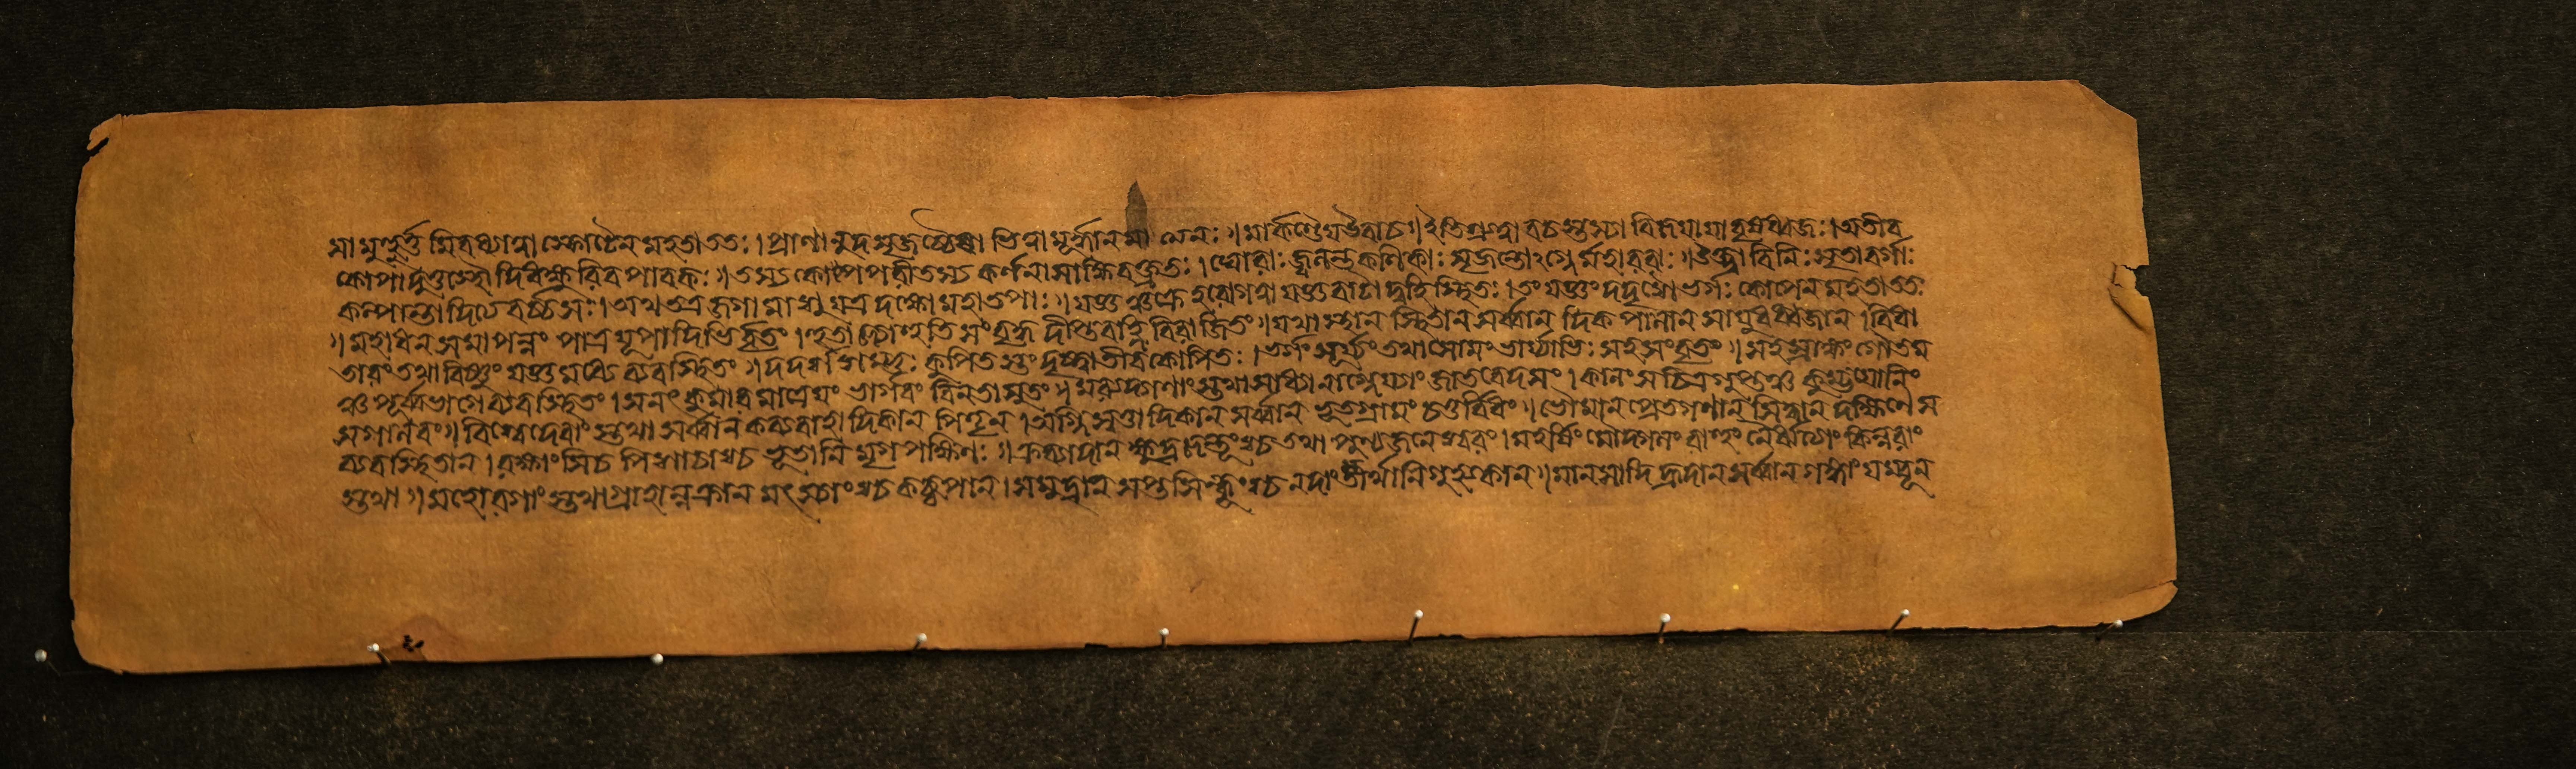 মা মুহূর্ত্ত মিবধ্যাত্বা স্ফোটেন মহতাততঃ। প্রাণানুদসৃজচ্চৈবা ভিত্বা মূর্দ্ধানমা মেনঃ॥ মার্কণ্ডেয়উবাচ॥ ইতিশ্রুত্বা বচস্তস্যা বিজয়ায়া বৃষধ্বজঃ। অতীব
কোপাদ্দুত্তস্থৌ দিধক্ষুরিব পাবকঃ॥ তস্য কোপপরীতস্য কর্ণনাসাক্ষিবক্ত্রতঃ। ঘোরাঃ জ্বলন্ত্যকণিকাঃ সৃজন্তোঽগ্নের্মহারবাঃ॥ উল্কা বিনিঃ সৃতাবর্গাঃ
কল্পান্তাদিত্য বর্চ্চসঃ। অথ তত্র জগামাশু যত্র দক্ষো মহাতপাঃ॥ যজ্ঞঞ্চক্রে হরোগত্বা যজ্ঞবাটা দ্বহিস্থিতঃ। তং যজ্ঞং দদৃশে ভর্গঃ কোপেন মহতাততঃ
॥ মহাধন সমাপন্নং পাত্রযূপাদিভি র্বৃতং। হুতাজ্যেহুতি সংবৃদ্ধ দীপ্তবহ্নি বিরাজিতং॥ যথাস্থান স্থিতান সর্ব্বান দিকপালান সাযুধধ্বজান। বিধা
তারং তথা বিষ্ণুং যজ্ঞমধ্যে ব্যবস্থিতং॥ দদর্শ শম্ভুঃ কুপিত স্তং দৃষ্ট্বাতীব কোপিতঃ। ভগং সূর্য্যং তথা সোমং ভার্য্যাভিঃ সহসংবৃতং॥ সহস্রাক্ষং গৌতম
ঞ্চ পূর্ব্বভাগে ব্যবস্থিতং। সনৎকুমার মাত্রেয়ং ভার্গবং বিনতাসুতং॥ মরুদ্গণাং স্তথা সাধ্যা নাগ্নেয্যাং জাতবেদসং। কালং সচিত্রগুপ্তঞ্চ কুম্ভযোনিং
সগালবং॥ বিশ্বেদেবাং স্তথা সর্ব্বান কব্যবাহাদিকান পিতৃন। অগ্নিস্বাত্তাদিকান সর্ব্বান ভূতগ্রামং চতুর্ব্বিধং॥ ভৌমান প্রেতগণান সিদ্ধান দক্ষিণে স
ব্যবস্থিতান। রক্ষাংসিচ পিশাচাশ্চ ভূতানি মৃগপক্ষিণঃ॥ ক্রব্যাদান ক্ষুদ্রজন্তূংশ্চ তথা পুণ্যজনেশ্বরং। মহর্ষিং মৌদ্গলং রাহুং নৈর্ঋত্যাং কিন্নরাং
স্তথা॥ মহোরগাং স্তথা গ্রাহান্নক্রান মৎস্যাংশ্চ কচ্ছপান। সমুদ্রান সপ্ত সিন্ধূংশ্চ নদাং স্তীর্থানি গুহ্যকান॥ মানসাদি হ্রদান সর্ব্বান গঙ্গাং যম্বূন